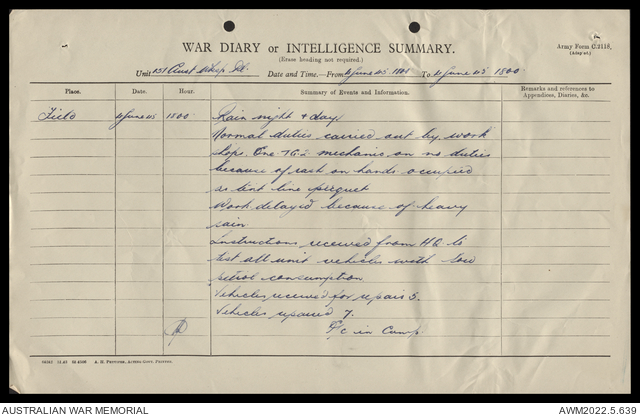 WAR DIARY or INTELLIGENCE SUMMARY.
(Erase heading not required.)
Army Form C.2118.
(Adapted.)
Unit 151 Aust Wksp Date and Time.—From 4 June 45 1801 To 4 June 45 1800
Place. Date. Hour. Summary of Events and Information. Remarks and references to
Appendices, Diaries, &c.
Field 4 June 45 1800 Rain night & day.
Normal duties carried out by work
shops. One mechanic on no duties
because of rash on hands occupied
as tent line picquet
Work delayed because of heavy
rain
Instructions received from HQ to
test all unit vehicles with low
petrol consumption
Vehicles received for repair 5.
Vehicles repaired 7.
O/c in Camp.
AUSTRALIAN WAR MEMORIAL
AWM2022.5.639